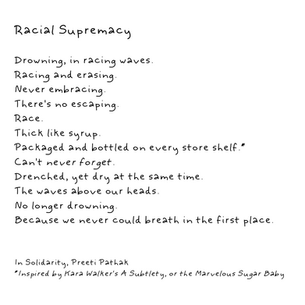 Racial Supremacy
Drowning, in racing waves.
Racing and erasing.
Never embracing.
There's no escaping.
Race.
Thick like syrup.
Packaged and bottled on every store shelf.*
Can't never forget.
Drenched, yet dry at the same time.
The waves above our heads.
No longer drowning.
Because we never could breath in the first place.
In Solidarity, Preeti Pathak
*Inspired by Kara Walker's A Subtlety, or the Marvelous Sugar Baby